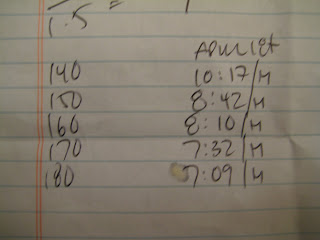 1.5 =
April 1st
140 10:17/M
150 8:42/M
160 8:10/M
170 7:32/M
180 7:09/M